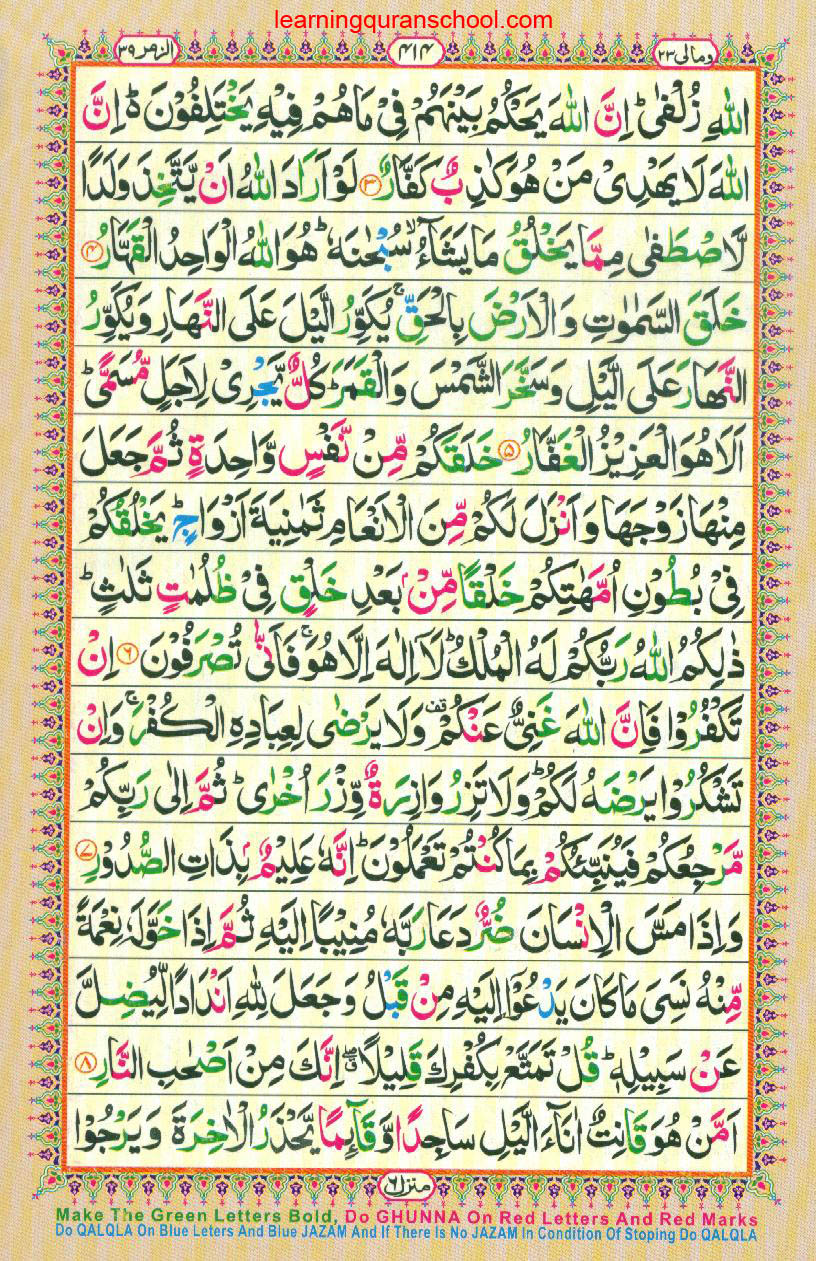 learningquranschool.com
الزمر ٣٩
٤١٤
ومالی ٢٣
اللّٰهِ زُلْفٰیؕ اِنَّ اللّٰهَ یَحْكُمُ بَیْنَهُمْ فِیْ مَا هُمْ فِیْهِ یَخْتَلِفُوْنَ۬ؕ اِنَّ
اللّٰهَ لَا یَهْدِیْ مَنْ هُوَ كٰذِبٌ كَفَّارٌ ﴿۳﴾ لَوْ اَرَادَ اللّٰهُ اَنْ یَّتَّخِذَ وَلَدًا
لَّاصْطَفٰی مِمَّا یَخْلُقُ مَا یَشَآءُۙ سُبْحٰنَهٗؕ هُوَ اللّٰهُ الْوَاحِدُ الْقَهَّارُ ﴿۴﴾
خَلَقَ السَّمٰوٰتِ وَ الْاَرْضَ بِالْحَقِّۚ یُكَوِّرُ الَّیْلَ عَلَی النَّهَارِ وَ یُكَوِّرُ
النَّهَارَ عَلَی الَّیْلِ وَ سَخَّرَ الشَّمْسَ وَ الْقَمَرَؕ كُلٌّ یَّجْرِیْ لِاَجَلٍ مُّسَمًّیؕ
اَلَا هُوَ الْعَزِیْزُ الْغَفَّارُ ﴿۵﴾ خَلَقَكُمْ مِّنْ نَّفْسٍ وَّاحِدَةٍ ثُمَّ جَعَلَ
مِنْهَا زَوْجَهَا وَ اَنْزَلَ لَكُمْ مِّنَ الْاَنْعَامِ ثَمٰنِیَةَ اَزْوَاجٍؕ یَخْلُقُكُمْ
فِیْ بُطُوْنِ اُمَّهٰتِكُمْ خَلْقًا مِّنْۢ بَعْدِ خَلْقٍ فِیْ ظُلُمٰتٍ ثَلٰثٍؕ
ذٰلِكُمُ اللّٰهُ رَبُّكُمْ لَهُ الْمُلْكُؕ لَاۤ اِلٰهَ اِلَّا هُوَۚ فَاَنّٰی تُصْرَفُوْنَ ﴿۶﴾ اِنْ
تَكْفُرُوْا فَاِنَّ اللّٰهَ غَنِیٌّ عَنْكُمْ۫ وَ لَا یَرْضٰی لِعِبَادِهِ الْكُفْرَۚ وَ اِنْ
تَشْكُرُوْا یَرْضَهُ لَكُمْؕ وَ لَا تَزِرُ وَازِرَةٌ وِّزْرَ اُخْرٰیؕ ثُمَّ اِلٰی رَبِّكُمْ
مَّرْجِعُكُمْ فَیُنَبِّئُكُمْ بِمَا كُنْتُمْ تَعْمَلُوْنَؕ اِنَّهٗ عَلِیْمٌۢ بِذَاتِ الصُّدُوْرِ ﴿۷﴾
وَ اِذَا مَسَّ الْاِنْسَانَ ضُرٌّ دَعَا رَبَّهٗ مُنِیْبًا اِلَیْهِ ثُمَّ اِذَا خَوَّلَهٗ نِعْمَةً
مِّنْهُ نَسِیَ مَا كَانَ یَدْعُوْۤا اِلَیْهِ مِنْ قَبْلُ وَ جَعَلَ لِلّٰهِ اَنْدَادًا لِّیُضِلَّ
عَنْ سَبِیْلِهٖؕ قُلْ تَمَتَّعْ بِكُفْرِكَ قَلِیْلًا ۖۗ اِنَّكَ مِنْ اَصْحٰبِ النَّارِ ﴿۸﴾
اَمَّنْ هُوَ قَانِتٌ اٰنَآءَ الَّیْلِ سَاجِدًا وَّ قَآىِٕمًا یَّحْذَرُ الْاٰخِرَةَ وَ یَرْجُوْا
منزل ٦
Make The Green Letters Bold, Do GHUNNA On Red Letters And Red Marks
Do QALQLA On Blue Leters And Blue JAZAM And If There Is No JAZAM In Condition Of Stoping Do QALQLA